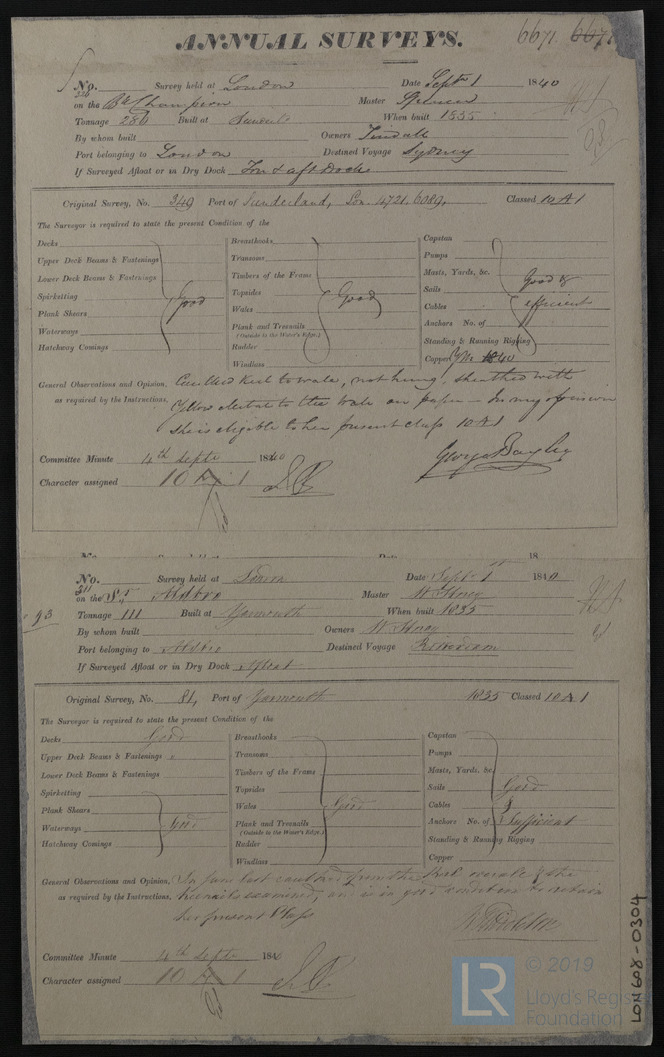 ANNUAL SURVEYS. 6671.
No. Survey held at London Date Septr 1 1840
on the Bk Champion Master Spencer
Tonnage 286 Built at When built 1835
By whom built Owners Tindall
Port belonging to London Destined Voyage Sydney
If Surveyed Afloat or in Dry Dock
Original Survey, No. 349 Port of Sunderland, Lon. 4721, 6089, Classed 10 A 1
The Surveyor is required to state the present Condition of the
Decks Breasthooks Capstan
Upper Deck Beams & Fastenings Transoms Pumps
Lower Deck Beams & Fastenings Timbers of the Frame Masts, Yards, &c.
Spirketting Good Topsides Good Sails Good &
Plank Shears Wales Cables efficient
Waterways Plank and Treenails (Outside to the Water's Edge.) Anchors No. of
Hatchway Comings Rudder Standing & Running Rigging
Windlass Copper 40
General Observations and Opinion, Caulked Keel to wale, sheathed with
as required by the Instructions. Yellow Metal to the wale on paper – In my opinion
she is eligible to her present class 10 A 1
Committee Minute 4th Septr 1840 George Bayley
Character assigned 10 A 1
No. Date 18
No. Survey held at Date Septr 1st 1840
311 on the Sr Aldbro Master W. Storey
Tonnage 111 Built at Yarmouth When built 1835
By whom built Owners W. Storey
Port belonging to Aldbro Destined Voyage Rotterdam
If Surveyed Afloat or in Dry Dock Afloat
Original Survey, No. 81, Port of Yarmouth 1835 Classed 10 A 1
The Surveyor is required to state the present Condition of the
Decks Good Breasthooks Capstan
Upper Deck Beams & Fastenings " Transoms Pumps
Lower Deck Beams & Fastenings Timbers of the Frame Masts, Yards, &c.
Spirketting Topsides Sails Good
Plank Shears Wales Good Cables &
Waterways Good Plank and Treenails (Outside to the Water's Edge.) Anchors No. of Sufficient
Hatchway Comings Rudder Standing & Running Rigging
Windlass Copper
General Observations and Opinion, In June last caulked from the & the
as required by the Instructions. treenails examined, and is in good condition to retain
her present Class
Committee Minute 4th Septr 1840
Character assigned 10 A 1
LR © 2019
Lloyd's Register
Foundation
LON 608-0304